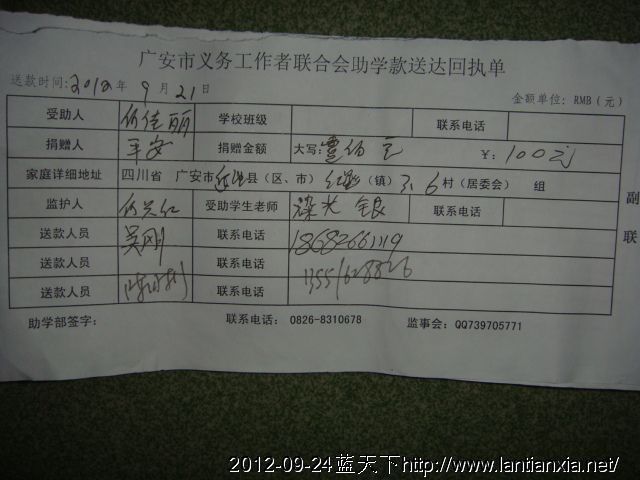 广安市义务工作者联合会助学款送达回执单
送款时间: 2012年 9月 21日 金额单位: RMB(元)
受助人 何佳丽 学校班级 联系电话
捐赠人 平安 捐赠金额 大写: 壹佰元 ¥: 100元
家庭详细地址 四川省 广安市 县(区、市) (镇) 6 村(居委会) 组
监护人 受助学生老师 联系电话
送款人员 吴刚 联系电话 18682661119
送款人员 联系电话
送款人员 联系电话
副联
助学部签字: 联系电话: 0826-8310678 监事会: QQ739705771
2012-09-24蓝天下http://www.lantianxia.net/